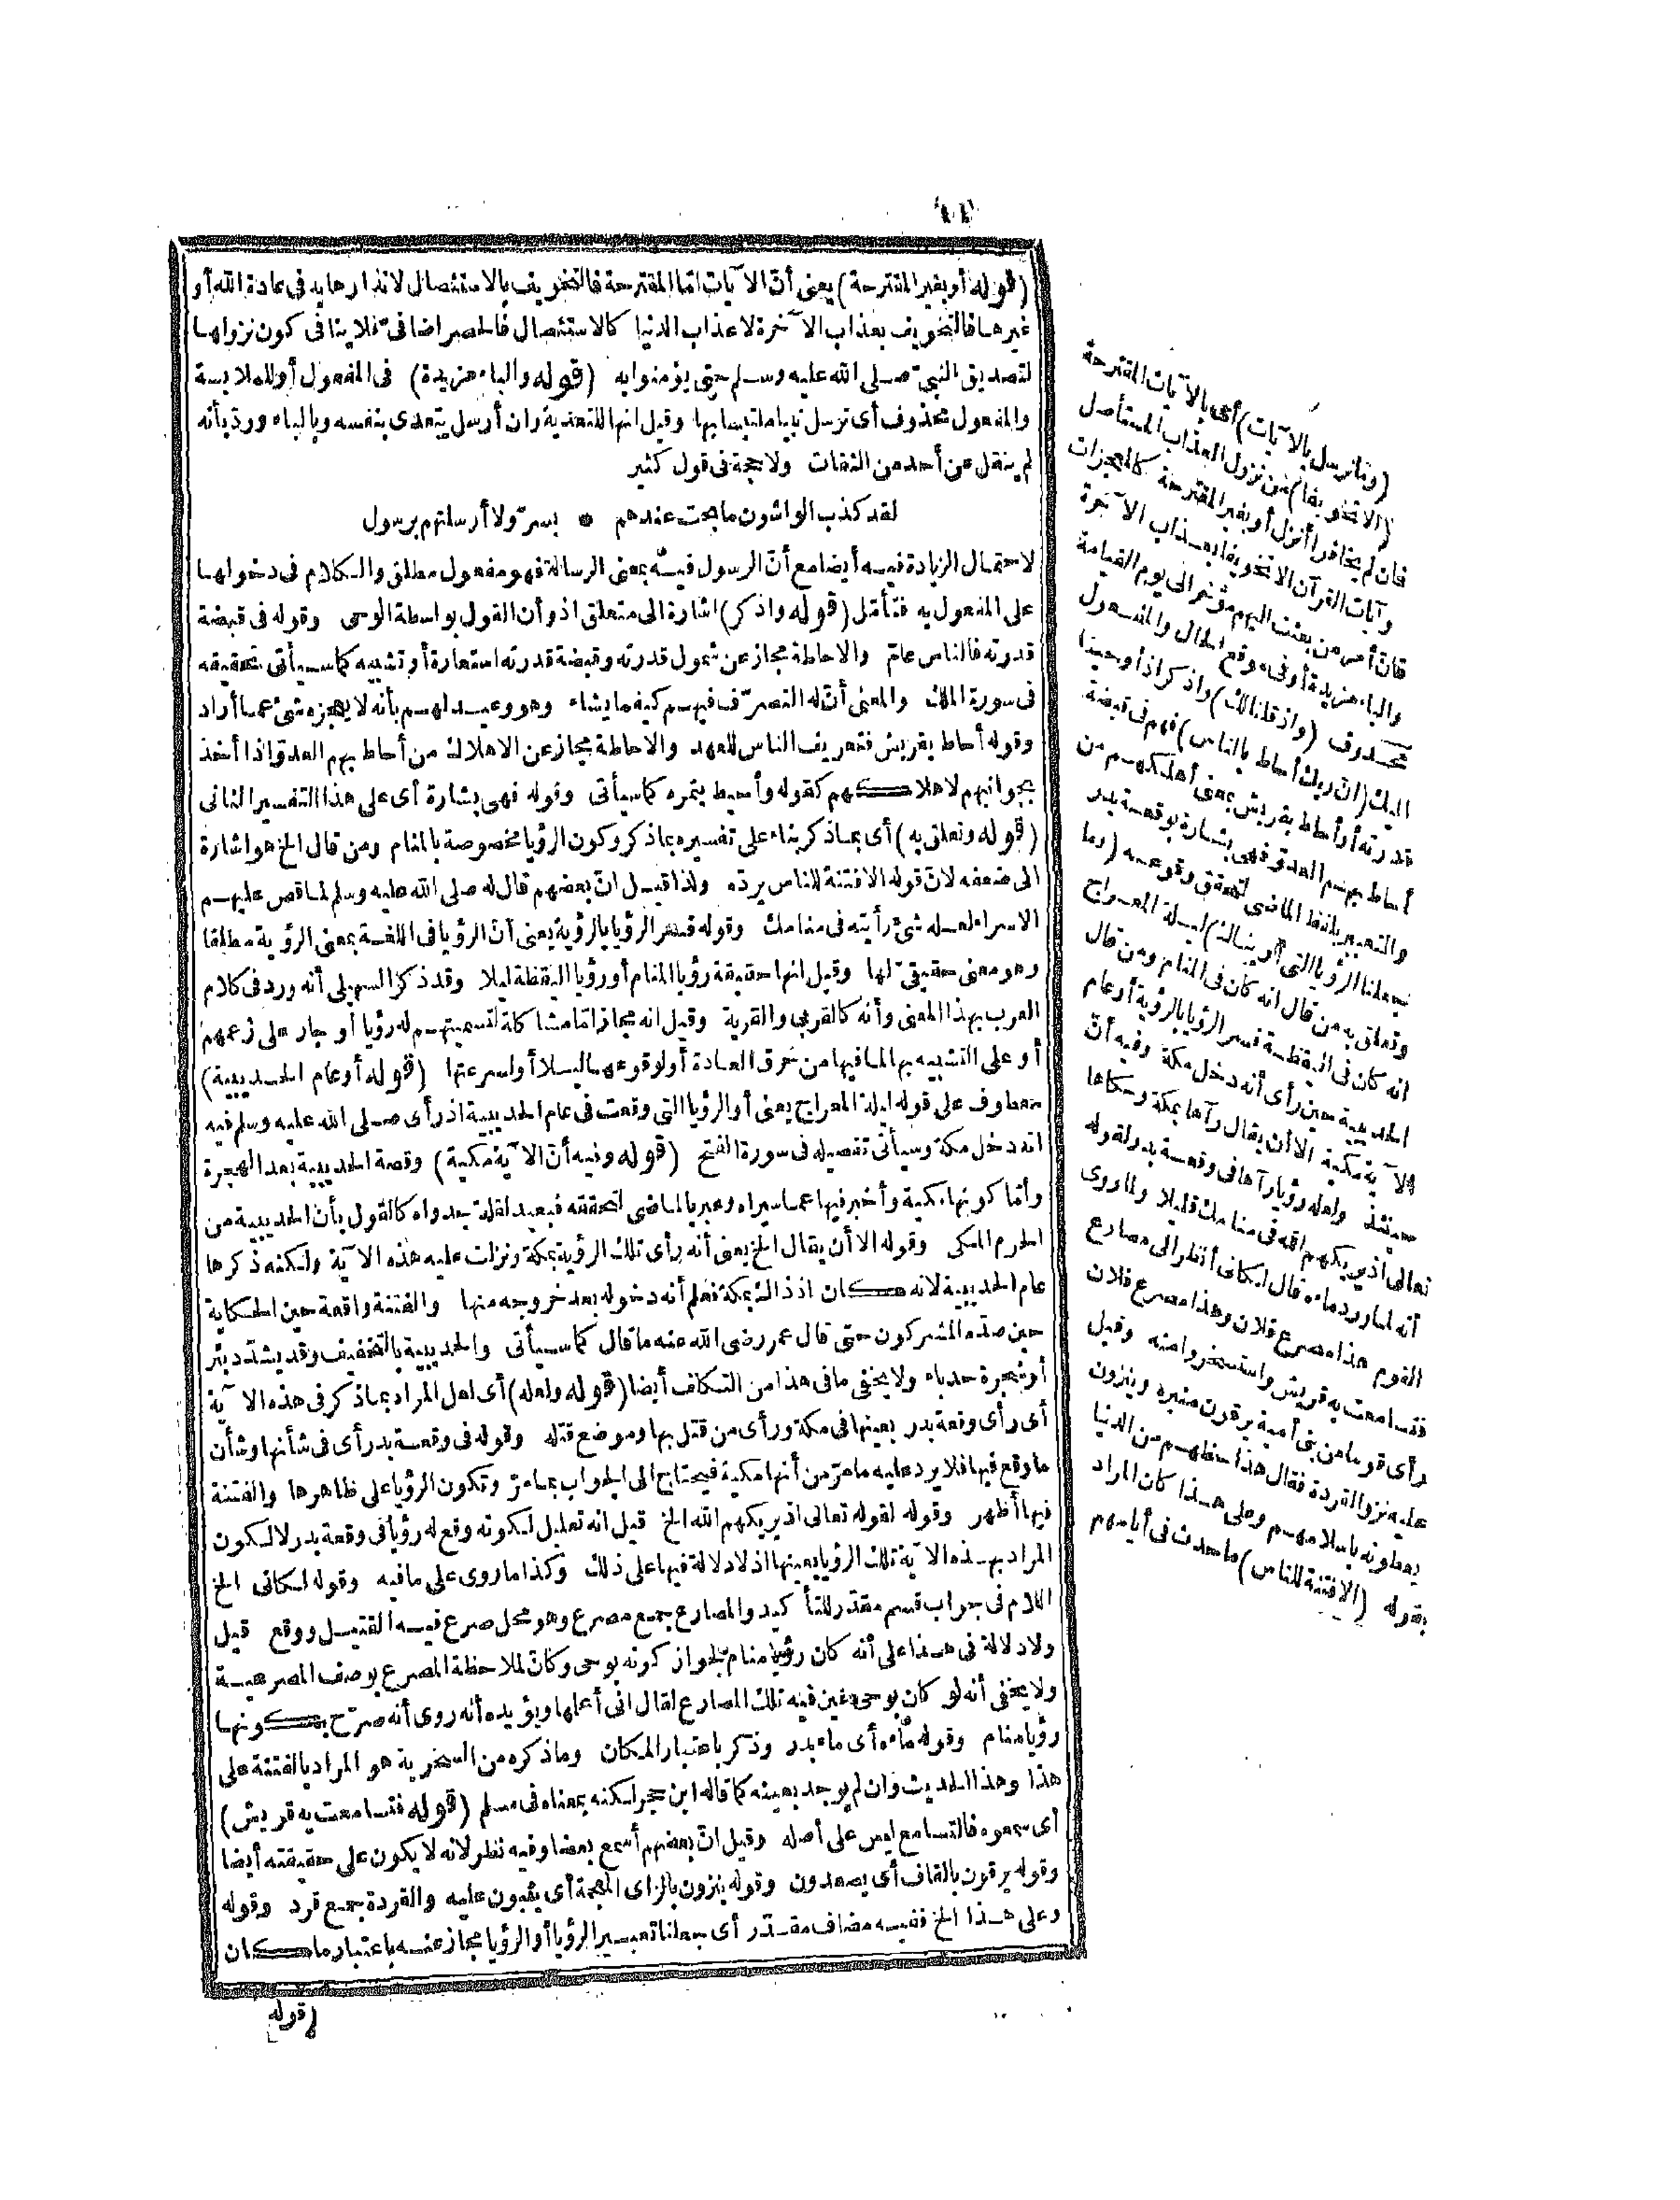 (قوله أو بغير المقترحة) يعنى أن الآيات اما المقترحة فالتخويف بالاستئصال لانذارها به فى عادة الله أو
غيرها فالتخويف بعذاب الآخرة لا عذاب الدنيا كالاستئصال فالحصر اضافىّ فلا ينافى كون نزولها
لتصديق النبىّ صلى الله عليه وسلم حتى يؤمنوا به (قوله والباء مزيدة) فى المفعول أو للملابسة
والمفعول محذوف أى نرسل نبيا ملتبسا بها وقيل انها للتعدية وان أرسل يتعدى بنفسه وبالباء وردّ بأنه
لم ينقل عن أحد من الثقات ولا حجة فى قول كثير
لقد كذب الواشون ما بحت عندهم * بسرّ ولا أرسلتهم برسول
لاحتمال الزيادة فيه أيضا مع أنّ الرسول فيه بمعنى الرسالة فهو مفعول مطلق والكلام فى دخولها
على المفعول به فتأمّل (قوله واذكر) اشارة الى متعلق اذ وأن القول بواسطة الوحى وقوله فى قبضة
قدرته فالناس عامّ والاحاطة مجاز عن شمول قدرته وقبضة قدرته استعارة أو تشبيه كما سيأتى تحقيقه
فى سورة الملك والمعنى أنّ له التصرّف فيهم كيفما يشاء وهو وعيد لهم بأنه لا يعجزه شئ عما أراد
وقوله أحاط بقريش فتعريف الناس للعهد والاحاطة مجاز عن الاهلاك من أحاط بهم العدوّ اذا أخذ
بجوانبهم لاهلاكهم كقوله وأحيط بثمره كما سيأتى وقوله فهى بشارة أى على هذا التفسير الثانى
(قوله وتعلق به) أى بما ذكر بناء على تفسيره بما ذكر وكون الرؤيا مخصوصة بالمنام ومن قال الخ هو اشارة
الى ضعفه لانّ قوله الا فتنة للناس يردّه ولذا قيل انّ بعضهم قال له صلى الله عليه وسلم لما قص عليهم
الاسراء لعله شئ رأيته فى منامك وقوله فسر الرؤيا بالرؤية يعنى أنّ الرؤيا فى اللغة بمعنى الرؤية مطلقا
وهو معنى حقيقىّ لها وقيل انها حقيقة رؤيا المنام أو رؤيا اليقظة ليلا وقد ذكر السهيلى أنه ورد فى كلام
العرب بهذا المعنى وأنه كالقربى والقربة وقيل انه مجاز اما مشاكلة لتسميتهم له رؤيا أو جار على زعمهم
أو على التشبيه بها لما فيها من خرق العادة أو لوقوعها ليلا أو لسرعتها (قوله أو عام الحديبية)
معطوف على قوله ليلة المعراج يعنى أو الرؤيا التى وقعت فى عام الحديبية اذ رأى صلى الله عليه وسلم فيه
انه دخل مكة وسيأتى تفصيله فى سورة الفتح (قوله وفيه أن الآية مكية) وقصة الحديبية بعد الهجرة
وأمّا كونها مكية وأخبر فيها عما سيراه وعبر بالماضى لتحققه فبعيد لقلة جدواه كالقول بأن الحديبية من
الحرم المكى وقوله الا أن يقال الخ يعنى أنه رأى تلك الرؤية بمكة ونزلت عليه هذه الآية ولكنه ذكرها
عام الحديبية لانه كان اذ ذاك بمكة فعلم أنه دخوله بعد خروجه منها والفتنة واقعة حين الحكاية
حين صدّه المشركون حتى قال عمر رضى الله عنه ما قال كما سيأتى والحديبية بالتخفيف وقد يشدّد بئر
أو شجرة حدباء ولا يخفى ما فى هذا من التكلف أيضا (قوله ولعله) أى لعل المراد بما ذكر فى هذه الآية
أى رأى وقعة بدر بعينها فى مكة ورأى من قتل بها وموضع قتله وقوله فى وقعة بدر أى فى شأنها وشأن
ما وقع فيها فلا يرد عليه ما مرّ من أنها مكية فيحتاج الى الجواب بما مرّ وتكون الرؤيا على ظاهرها والفتنة
فيها أظهر وقوله لقوله تعالى اذ يريكهم الله الخ قيل انه تعليل لكونه وقع له رؤيا فى وقعة بدر لا لكون
المراد بهذه الآية تلك الرؤيا بعينها اذ لا دلالة فيها على ذلك وكذا ما روى على ما فيه وقوله لكانى الخ
اللام فى جواب قسم مقدّر للتأكيد والمصارع جمع مصرع وهو محل صرع فيه القتيل ووقع قيل
ولا دلالة فى هذا على أنه كان رؤيا منام لجواز كونه بوحى وكأنّ لملاحظة المصرع بوصف المصرعية
ولا يخفى أنه لو كان بوحى تعين فيه تلك المصارع لقال انى أعلمها ويؤيده أنه روى أنه صرّح بكونها
رؤيا منام وقوله ماءه أى ماء بدر وذكر باعتبار المكان وما ذكره من السخرية هو المراد بالفتنة على
هذا وهذا الحديث وان لم يوجد بعينه كما قاله ابن حجر لكنه بمعناه فى مسلم (قوله فتسامعت به قريش)
أى سمعوه فالتسامع ليس على أصله وقيل انّ بعضهم أسمع بعضا وفيه نظر لانه لا يكون على حقيقته أيضا
وقوله يرقون بالقاف أى يصعدون وقوله ينزون بالزاى المعجمة أى يثبون عليه والقردة جمع قرد وقوله
وعلى هذا الخ ففيه مضاف مقدّر أى جعلنا تعبير الرؤيا أو الرؤيا مجاز عنه باعتبار ما كان
(قوله
(وما نرسل بالآيات) أى بالآيات المقترحة
(الا تخويفا) من نزول العذاب المستأصل
فان لم يخافوا أنزل أو بغير المقترحة كالمعجزات
وآيات القرآن الا تخويفا بعذاب الآخرة
فانّ أمر من بعثت اليهم مؤخر الى يوم القيامة
والباء مزيدة أو فى موقع الحال والمفعول
محذوف (واذ قلنا لك) واذكر اذ أوحينا
اليك (ان ربك أحاط بالناس) فهم فى قبضة
قدرته أو أحاط بقريش بمعنى أهلكهم من
أحاط بهم العدوّ فهى بشارة بوقعة بدر
والتعبير بلفظ الماضى لتحقق وقوعه (وما
جعلنا الرؤيا التى أريناك) ليلة المعراج
وتعلق به من قال انه كان فى المنام ومن قال
انه كان فى اليقظة فسر الرؤيا بالرؤية أو عام
الحديبية حين رأى أنه دخل مكة وفيه أنّ
الآية مكية الا أن يقال رآها بمكة وحكاها
حينئذ ولعله رؤيا رآها فى وقعة بدر لقوله
تعالى اذ يريكهم الله فى منامك قليلا ولما روى
أنه لما ورد ماءه قال لكانى أنظر الى مصارع
القوم هذا مصرع فلان وهذا مصرع فلان
فتسامعت به قريش واستسخروا منه وقيل
رأى قوما من بنى أمية يرقون منبره وينزون
عليه نزو القردة فقال هذا حظهم من الدنيا
يعطونه باسلامهم وعلى هذا كان المراد
بقوله (الا فتنة للناس) ما حدث فى أيامهم